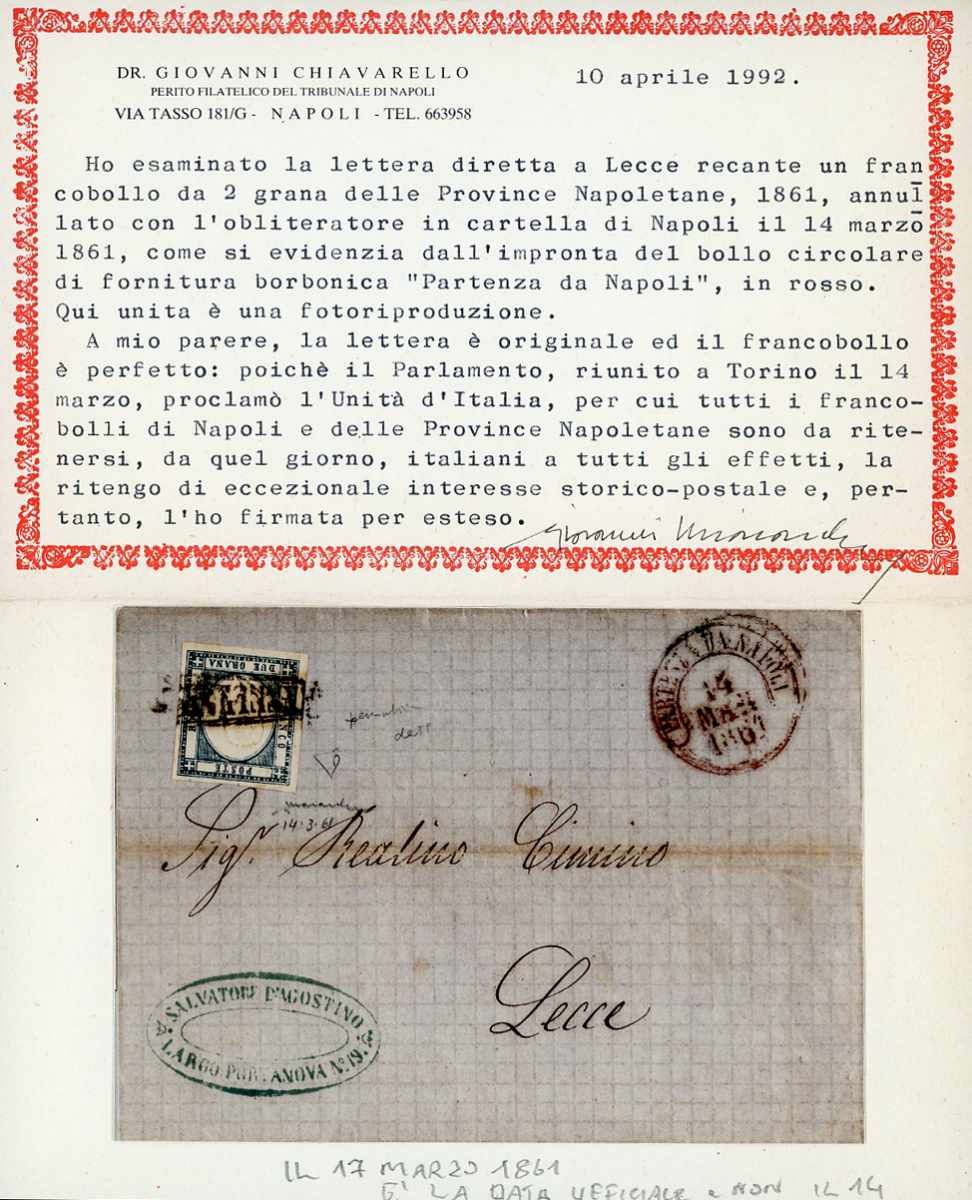 DR. GIOVANNI CHIAVARELLO
PERITO FILATELICO DEL TRIBUNALE DI NAPOLI
VIA TASSO 181/G - NAPOLI - TEL. 663958
10 aprile 1992.
Ho esaminato la lettera diretta a Lecce recante un fran
cobollo da 2 grana delle Province Napoletane, 1861, annul
lato con l'obliteratore in cartella di Napoli il 14 marzo
1861, come si evidenzia dall'impronta del bollo circolare
di fornitura borbonica "Partenza da Napoli", in rosso.
Qui unita è una fotoriproduzione.
A mio parere, la lettera è originale ed il francobollo
è perfetto: poichè il Parlamento, riunito a Torino il 14
marzo, proclamò l'Unità d'Italia, per cui tutti i franco-
bolli di Napoli e delle Province Napoletane sono da rite-
nersi, da quel giorno, italiani a tutti gli effetti, la
ritengo di eccezionale interesse storico-postale e, per-
tanto, l'ho firmata per esteso.
Giovanni
DUE GRANA
POSTE
PARTENZA DA NAPOLI
14
MAR
1861
14.3.61
Sigr. Realino Cimino
Lecce
SALVATORE D'AGOSTINO
LARGO PORTANOVA No. 19.
IL 17 MARZO 1861
E' LA DATA UFFICIALE e NON IL 14